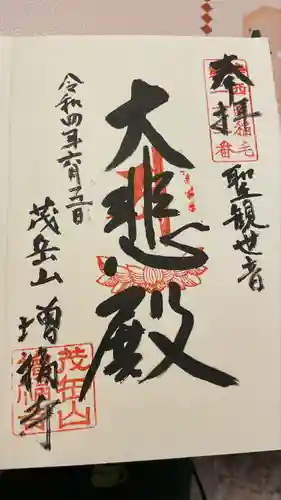 奉拝
聖観世音
大悲殿
令和四年六月五日
茂岳山
増福寺
茂岳山